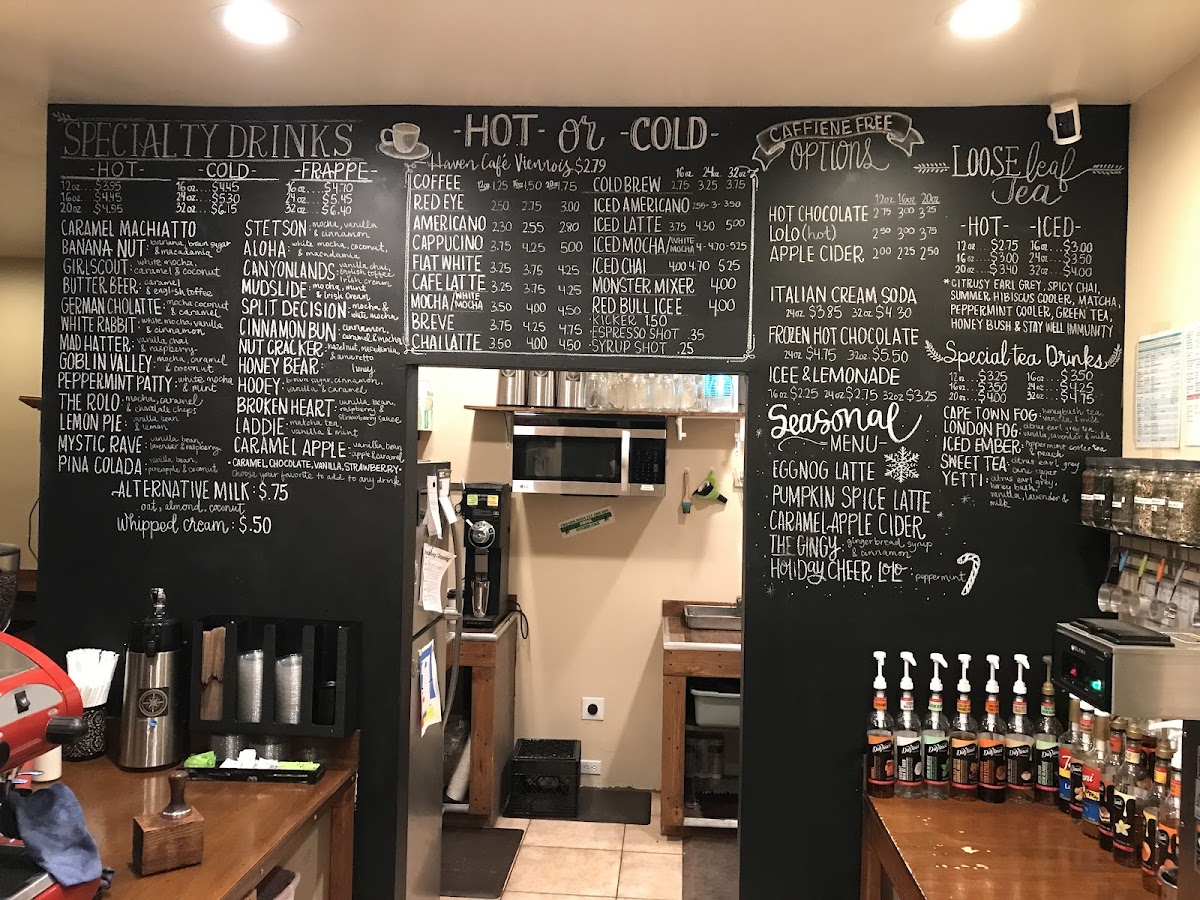 SPECIALTY DRINKS
-HOT-
12oz...$3.95
16oz...$4.45
20oz...$4.95
-COLD-
16oz....$4.45
24oz....$5.30
32oz....$6.15
-FRAPPE-
16oz....$4.70
24oz....$5.45
32oz....$6.40
CARAMEL MACHIATTO
BANANA NUT: banana, brown sugar
& macadamia
GIRLSCOUT: white mocha,
caramel & coconut
BUTTER BEER: caramel
& english toffee
GERMAN CHOLATTE: mocha coconut
& caramel
WHITE RABBIT: white mocha, vanilla
& cinnamon
MAD HATTER: vanilla chai
& raspberry
GOBLIN VALLEY: mocha, caramel
& coconut
PEPPERMINT PATTY: white mocha
& mint
THE ROLO: mocha, caramel
& chocolate chips
LEMON PIE: vanilla bean
& lemon
MYSTIC RAVE: vanilla bean,
lavender & raspberry
PINA COLADA: vanilla bean,
pineapple & coconut
STETSON: mocha, vanilla
& cinnamon
ALOHA: white mocha, coconut,
& macadamia
CANYONLANDS: vanilla chai,
english toffee
Irish cream
MUDSLIDE: mocha, mint
& Irish cream
SPLIT DECISION: mocha &
white mocha
CINNAMON BUN: cinnamon,
caramel & mocha
NUT CRACKER: hazelnut, macadamia,
& amaretto
HONEY BEAR: honey,
HOOEY: brown sugar, cinnamon,
vanilla & caramel,
BROKEN HEART: vanilla bean,
raspberry &
strawberry sauce
LADDIE: matcha tea,
vanilla & mint
CARAMEL APPLE: vanilla bean,
apple & caramel
-CARAMEL, CHOCOLATE, VANILLA, STRAWBERRY-
choose your favorite to add to any drink
ALTERNATIVE MILK: $.75
oat, almond, coconut
Whipped cream: $.50
-HOT- or -COLD-
Haven Café Viennois $2.79
COFFEE 12oz 1.25 16oz 1.50 20oz 1.75
RED EYE 2.50 2.75 3.00
AMERICANO 2.30 2.55 2.80
CAPPUCINO 3.75 4.25 5.00
FLAT WHITE 3.25 3.75 4.25
CAFE LATTE 3.25 3.75 4.25
MOCHA/WHITE MOCHA 3.50 4.00 4.50
BREVE 3.75 4.25 4.75
CHAI LATTE 3.50 4.00 4.50
16oz 24oz 32oz
COLD BREW 2.75 3.25 3.75
ICED AMERICANO 2.50 - 3 - 3.50
ICED LATTE 3.75 4.30 5.00
ICED MOCHA/WHITE MOCHA 4 - 4.70 - 5.25
ICED CHAI 4.00 4.70 5.25
MONSTER MIXER 4.00
RED BULL ICEE 4.00
KICKER 1.50
ESPRESSO SHOT .35
SYRUP SHOT .25
CAFFIENE FREE
OPTIONS
12oz 16oz 20oz
HOT CHOCOLATE 2.75 3.00 3.25
LOLO (hot) 2.50 3.00 3.75
APPLE CIDER 2.00 2.25 2.50
ITALIAN CREAM SODA
24oz $3.85 32oz $4.30
FROZEN HOT CHOCOLATE
24oz $4.75 32oz $5.50
ICEE & LEMONADE
16oz $2.25 24oz $2.75 32oz $3.25
Seasonal
-MENU-
EGGNOG LATTE
PUMPKIN SPICE LATTE
CARAMEL APPLE CIDER
THE GINGY: gingerbread, syrup
& cinnamon
HOLIDAY CHEER LOLO: peppermint
LOOSE leaf
Tea
-HOT-
12oz...$2.75
16oz...$3.00
20oz...$3.40
-ICED-
16oz...$3.00
24oz...$3.50
32oz...$4.00
*CITRUSY EARL GREY, SPICY CHAI,
SUMMER HIBISCUS COOLER, MATCHA,
PEPPERMINT COOLER, GREEN TEA,
HONEY BUSH & STAY WELL IMMUNITY
Special tea Drinks
12oz...$3.25
16oz...$3.50
20oz...$4.00
16oz...$3.50
24oz...$4.25
32oz...$4.75
CAPE TOWN FOG: honeybush tea,
vanilla & milk
LONDON FOG: citrus earl grey tea
vanilla, lavender & milk
ICED EMBER: peppermint cooler tea
& peach
SWEET TEA: citrus earl grey
cane sugar
YETTI: citrus earl grey,
honey bush,
vanilla, lavender &
milk
LG
BUNN
DaVinci
DaVinci
DaVinci
DaVinci
DaVinci
DaVinci
DaVinci